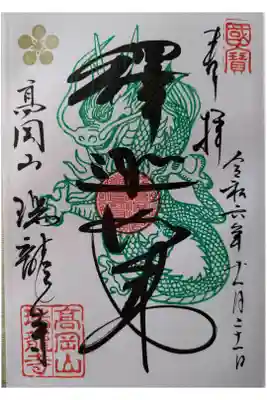 國寶
奉拝
令和六年十一月二十一日
釋迦如来
高岡山 瑞龍寺
高岡山
瑞龍寺